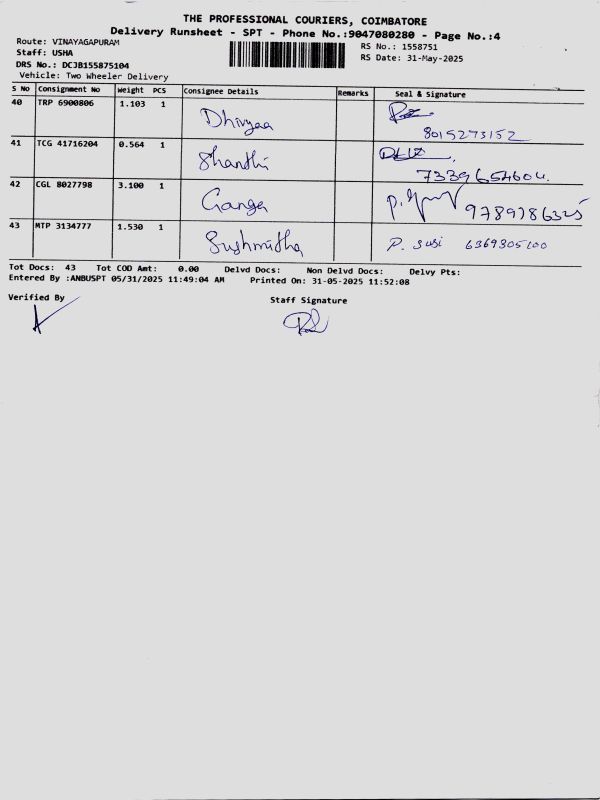 THE PROFESSIONAL COURIERS, COIMBATORE
Delivery Runsheet - SPT - Phone No.:9047080280 - Page No.:4
Route: VINAYAGAPURAM
Staff: USHA
DRS No.: DCJB155875104
Vehicle: Two Wheeler Delivery
RS No.: 1558751
RS Date: 31-May-2025
S No Consignment No Weight PCS Consignee Details Remarks Seal & Signature
40 TRP 6900806 1.103 1 Dhivyaa
8015273152
41 TCG 41716204 0.564 1 Shanthi
7339654604
42 CGL 8027798 3.100 1 Ganga
43 MTP 3134777 1.530 1 Sushmitha P. Susi 6369805100
Tot Docs: 43 Tot COD Amt: 0.00 Delvd Docs: Non Delvd Docs: Delvy Pts:
Entered By :ANBUSPT 05/31/2025 11:49:04 AM Printed On: 31-05-2025 11:52:08
Verified By
Staff Signature